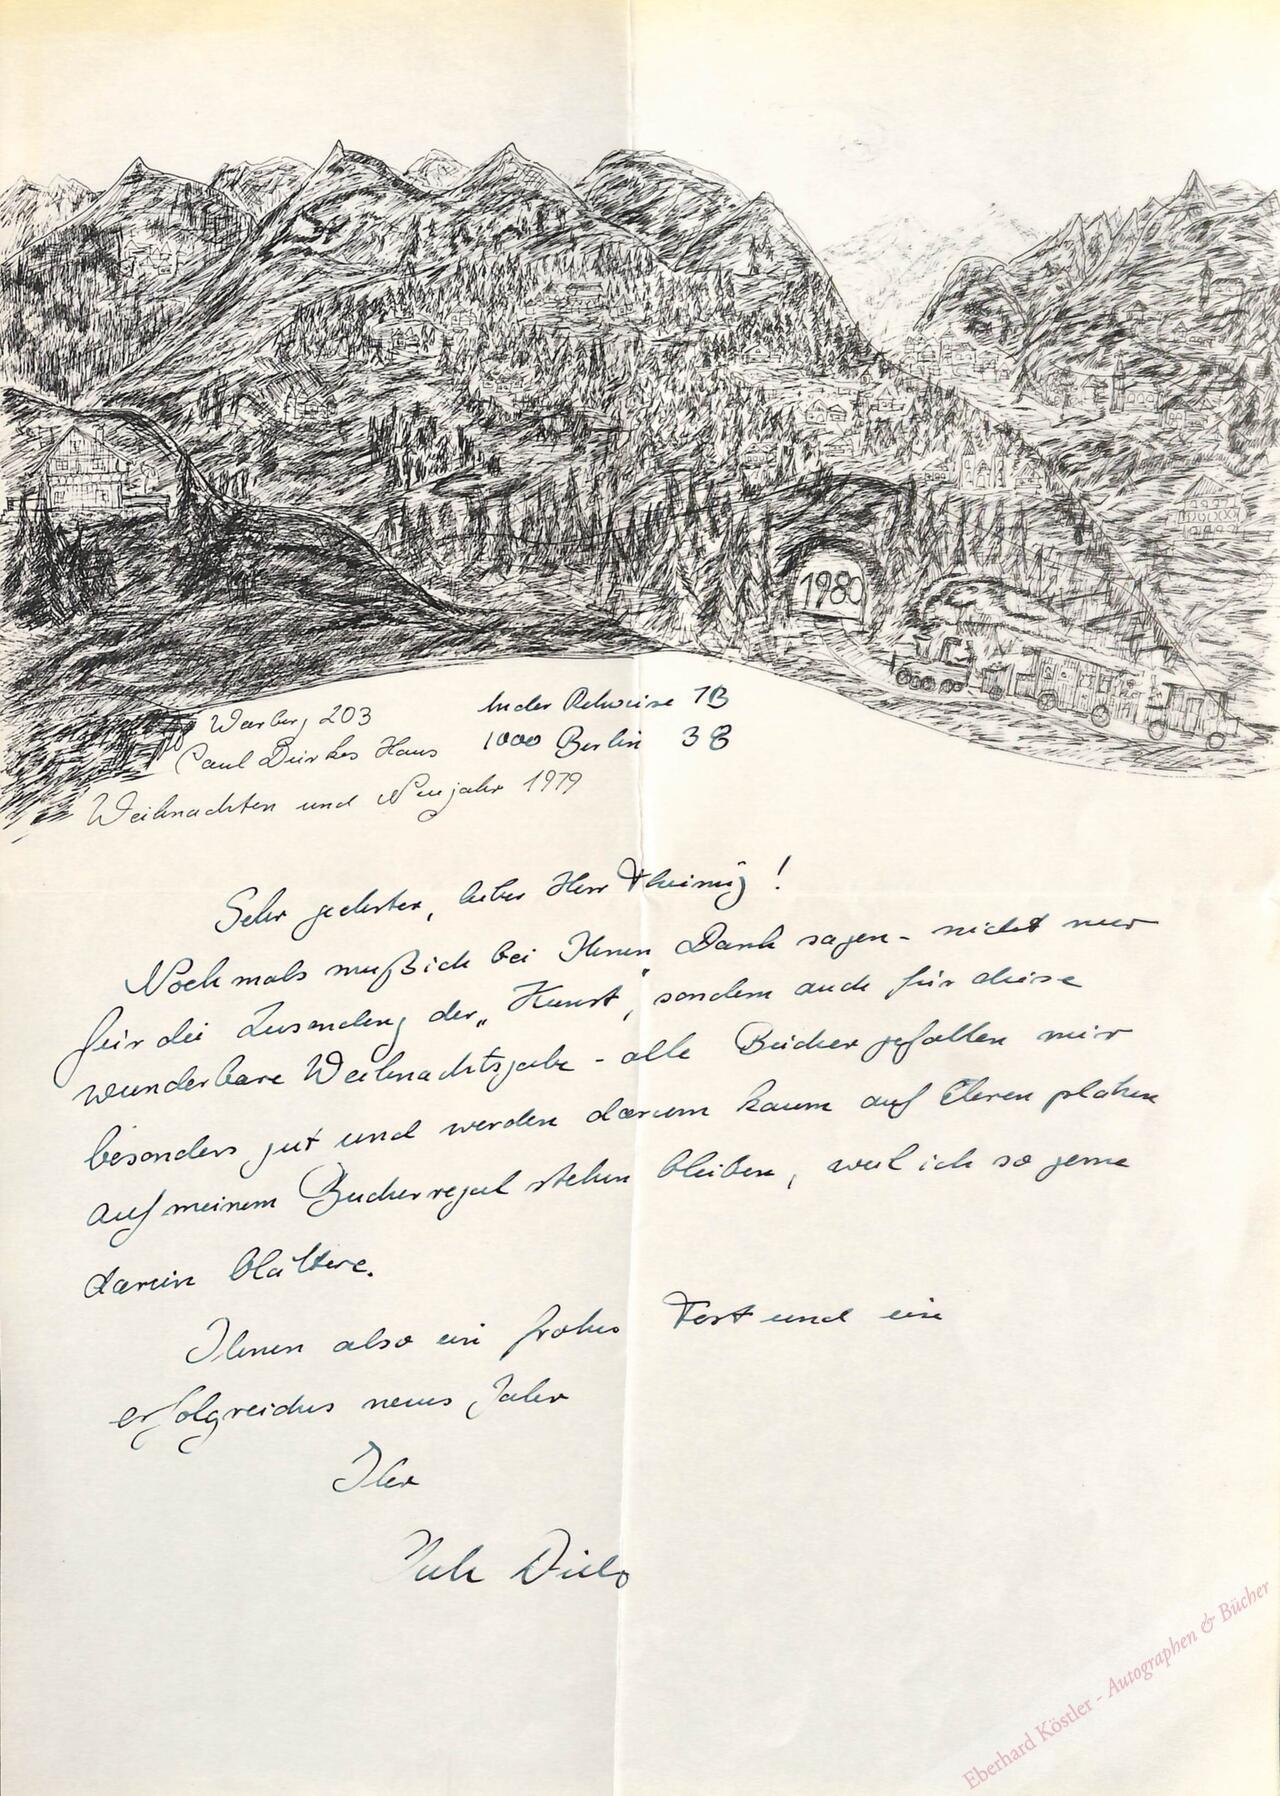 1980
Warberg 203
Paul Dierkes Haus
In der Rehwiese 1B
1000 Berlin 38
Weihnachten und Neujahr 1979
Sehr geehrter, lieber Herr !
Nochmals muß ich bei Ihnen Dank sagen - nicht nur
für die Zusendung der „Kunst", sondern auch für diese
wunderbare Weihnachtsgabe - alle Bücher gefallen mir
besonders gut und werden darum kaum auf Ehrenplätzen
auf meinem Bücherregal stehen bleiben, weil ich so gerne
darin blättere.
Ihnen also ein frohes Fest und ein
erfolgreiches neues Jahr
Ihr
Eberhard Köstler - Autographen & Bücher